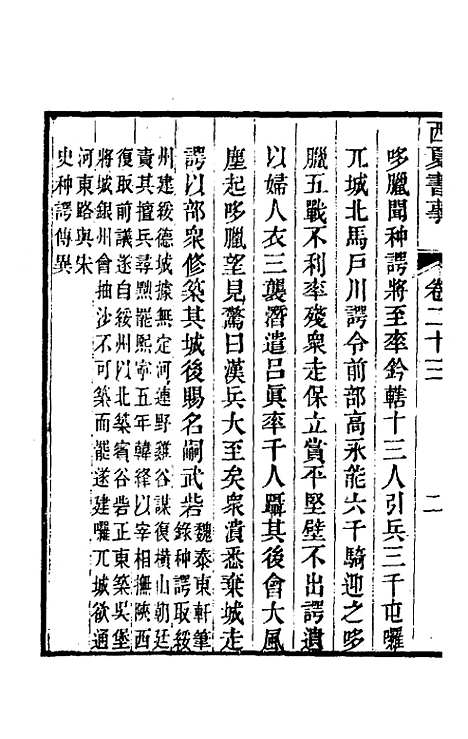 西夏書事　卷二十三　二
哆臘聞种諤將至率鈐轄十三人引兵三千屯囉
兀城北馬戸川諤令前部高永能六千騎迎之哆
臘五戰不利率殘衆走保立賞平堅壁不出諤遺
以婦人衣三襲潛遣呂眞率千人躡其後會大風
塵起哆臘望見驚曰漢兵大至矣衆潰悉棄城走
諤以部衆修築其城後賜名嗣武砦
魏泰東軒筆
錄种諤取綏
州建綏德城據無定河連野雞谷謀復橫山朝廷
責其擅兵尋黜罷熙寧五年韓絳以宰相撫陝西
復取前議遂自綏州以北築賓谷砦正東築吳堡
將城銀州會抽沙不可築而罷遂建囉兀城欲通
河東路與宋
史种諤傳異